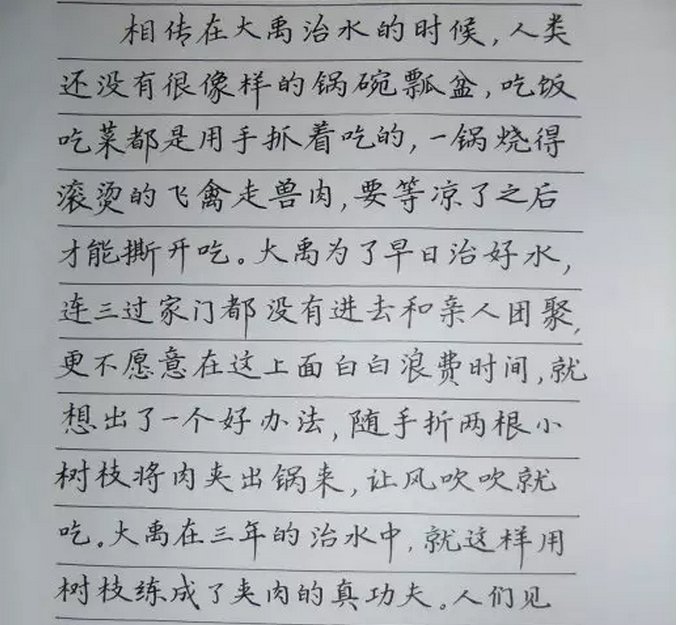 相传在大禹治水的时候,人类
还没有很像样的锅碗瓢盆,吃饭
吃菜都是用手抓着吃的,一锅烧得
滚烫的飞禽走兽肉,要等凉了之后
才能撕开吃。大禹为了早日治好水,
连三过家门都没有进去和亲人团聚,
更不愿意在这上面白白浪费时间,就
想出了一个好办法,随手折两根小
树枝将肉夹出锅来,让风吹吹就
吃。大禹在三年的治水中,就这样用
树枝练成了夹肉的真功夫。人们见